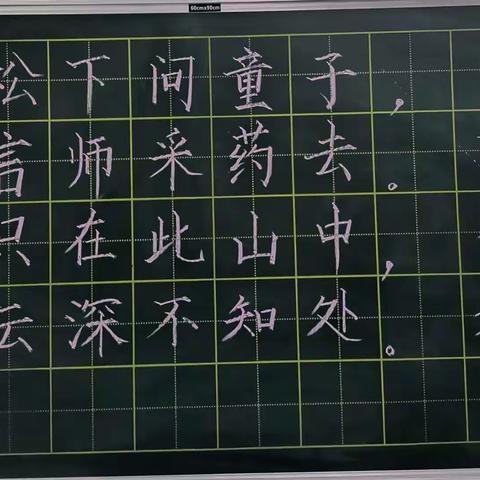 60cmx90cm
松下问童子，
言师采药去。
只在此山中，
云深不知处。